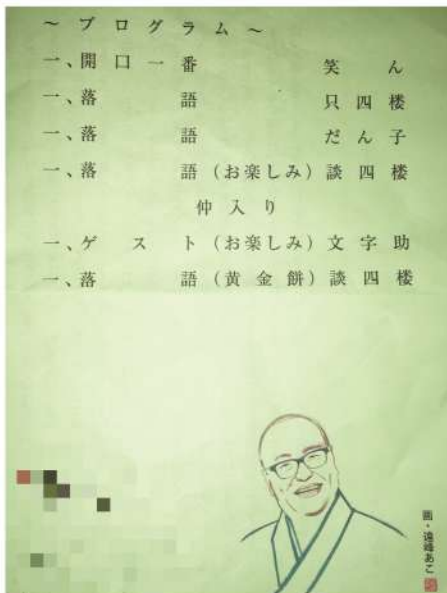 ～プログラム～
一、開口一番 笑ん
一、落語 只四楼
一、落語 だん子
一、落語(お楽しみ)談四楼
仲入り
一、ゲスト(お楽しみ)文字助
一、落語(黄金餅)談四楼
画・遠峰あこ